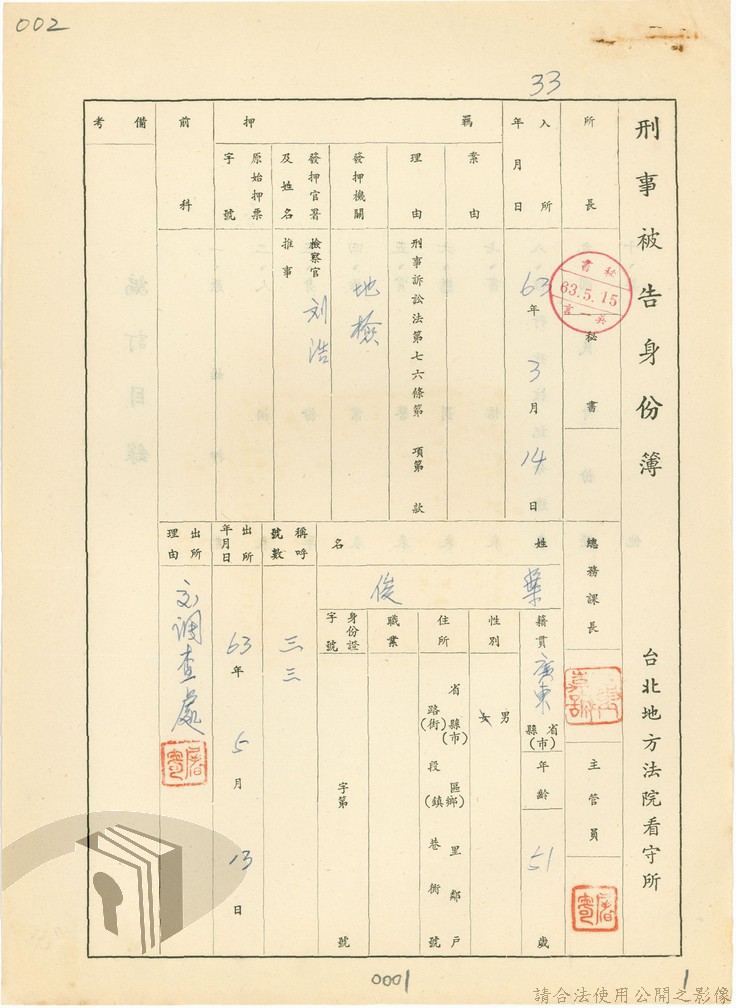 002
33
刑事被告身份簿
台北地方法院看守所
所長
秘書
書秘
63.5.15
總務課長
主管員
入所年月日
63年3月14日
羈押
案由
理由
刑事訴訟法第七六條第項第款
發押機關
地檢
發押官署及姓名
檢察官
刘浩
推事
原始押票字號
前科
備考
姓名
葉俊
籍貫
廣東
省縣(市)
年齡
51歲
性別
男女
住所
省縣(市)區(鄉鎮)里鄰戶
路(街)段巷衖號
職業
身份證字號
字第號
稱呼號數
三三
出所年月日
63年5月13日
出所理由
交調查處
0001
1
請合法使用公開之影像